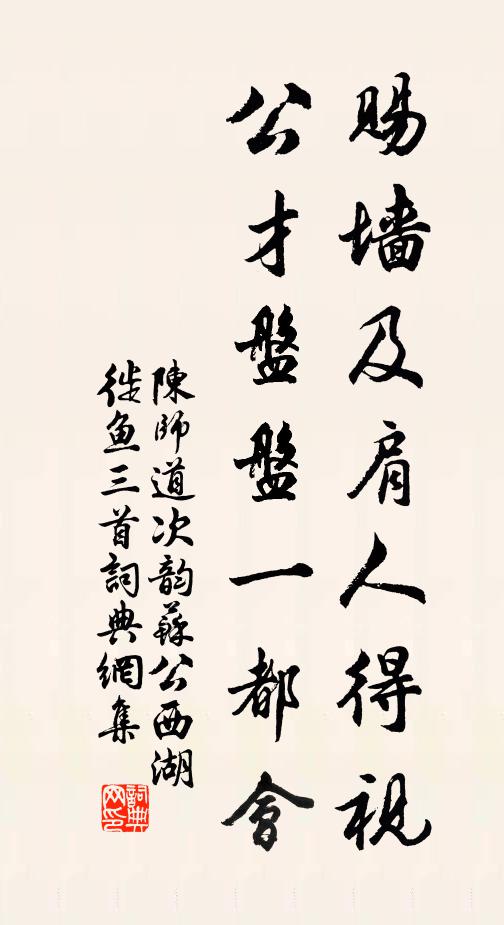 赐墙及肩人得視
公才盤盤一都會
陳師道次韵蘇公西湖
徙鱼三首詞典網集
詞典
网印